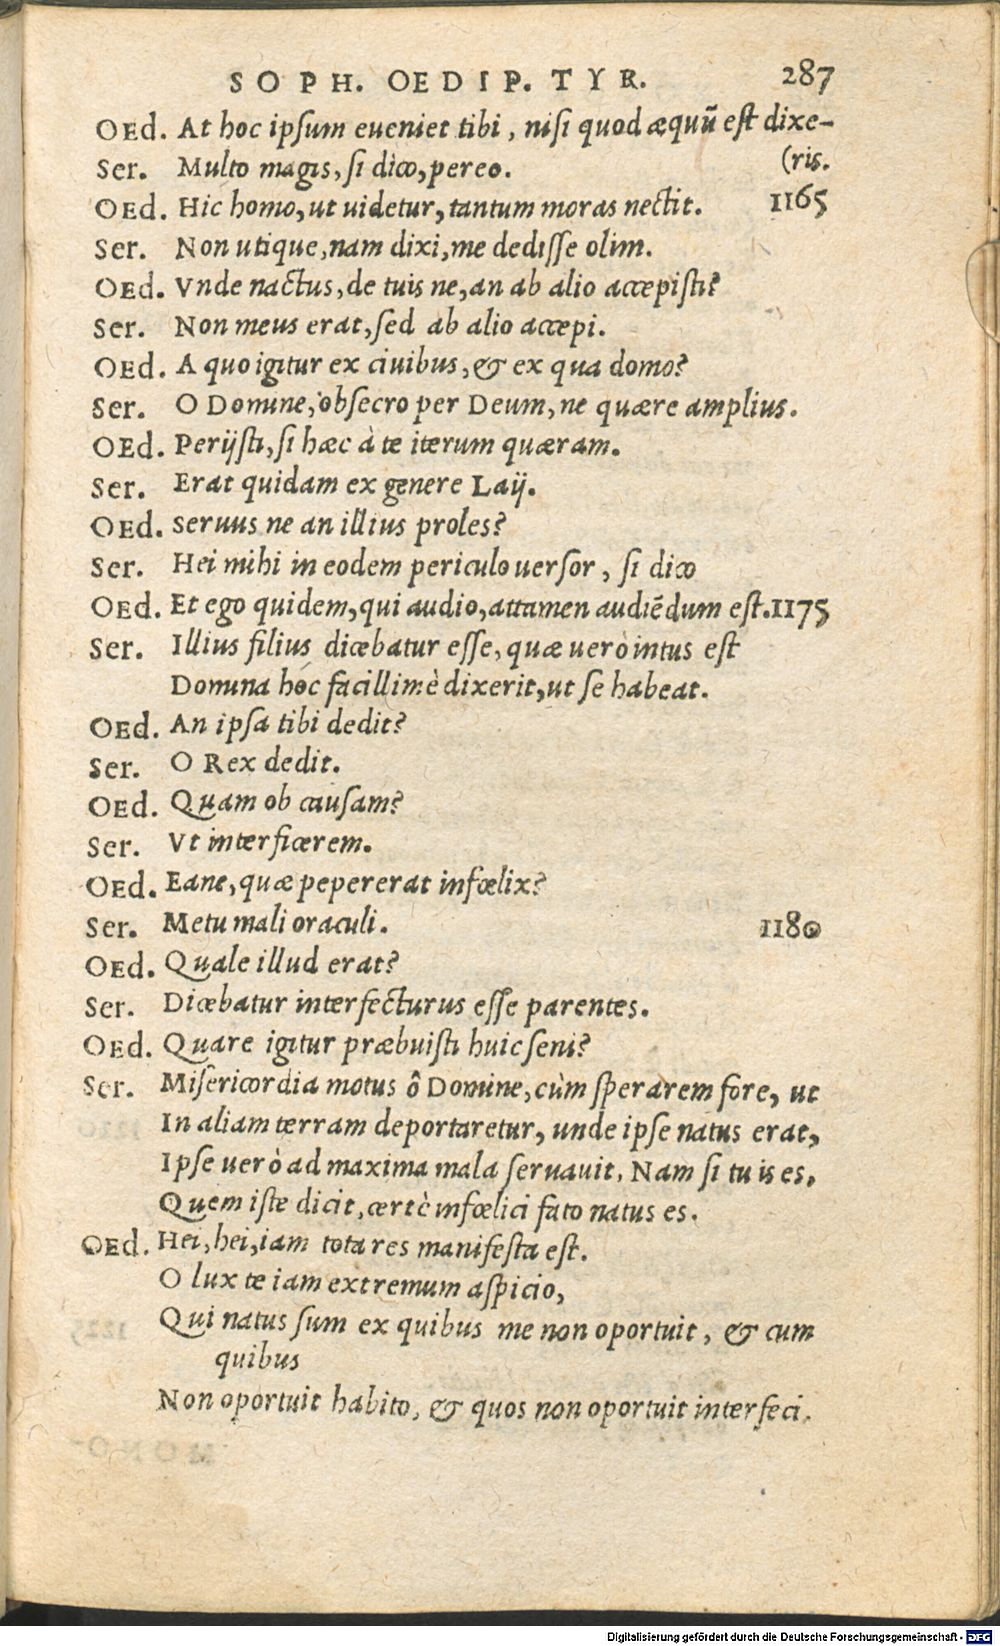 SOPH. OEDIP. TYR. 287
OEd. At hoc ipsum eueniet tibi, nisi quod æquũ est dixe-
Ser. Multo magis, si dico, pereo. (ris.
OEd. Hic homo, ut uidetur, tantum moras nectit. 1165
Ser. Non utique, nam dixi, me dedisse olim.
OEd. Vnde nactus, de tuis ne, an ab alio accepisti?
Ser. Non meus erat, sed ab alio accepi.
OEd. A quo igitur ex ciuibus, & ex qua domo?
Ser. O Domine, obsecro per Deum, ne quære amplius.
OEd. Perijsti, si hæc à te iterum quæram.
Ser. Erat quidam ex genere Laij.
OEd. seruus ne an illius proles?
Ser. Hei mihi in eodem periculo uersor, si dico
OEd. Et ego quidem, qui audio, attamen audiẽdum est. 1175
Ser. Illius filius dicebatur esse, quæ uerò intus est
Domina hoc facillimè dixerit, ut se habeat.
OEd. An ipsa tibi dedit?
Ser. O Rex dedit.
OEd. Quam ob causam?
Ser. Vt interficerem.
OEd. Eane, quæ pepererat infœlix?
Ser. Metu mali oraculi. 1180
OEd. Quale illud erat?
Ser. Dicebatur interfecturus esse parentes.
OEd. Quare igitur præbuisti huic seni?
Ser. Misericordia motus ô Domine, cùm sperarem fore, ut
In aliam terram deportaretur, unde ipse natus erat,
Ipse uerò ad maxima mala seruauit. Nam si tu is es,
Quem iste dicit, certè infœlici fato natus es.
OEd. Hei, hei, iam tota res manifesta est.
O lux te iam extremum aspicio,
Qui natus sum ex quibus me non oportuit, & cum
quibus
Non oportuit habito, & quos non oportuit interfeci.
Digitalisierung gefördert durch die Deutsche Forschungsgemeinschaft - DFG